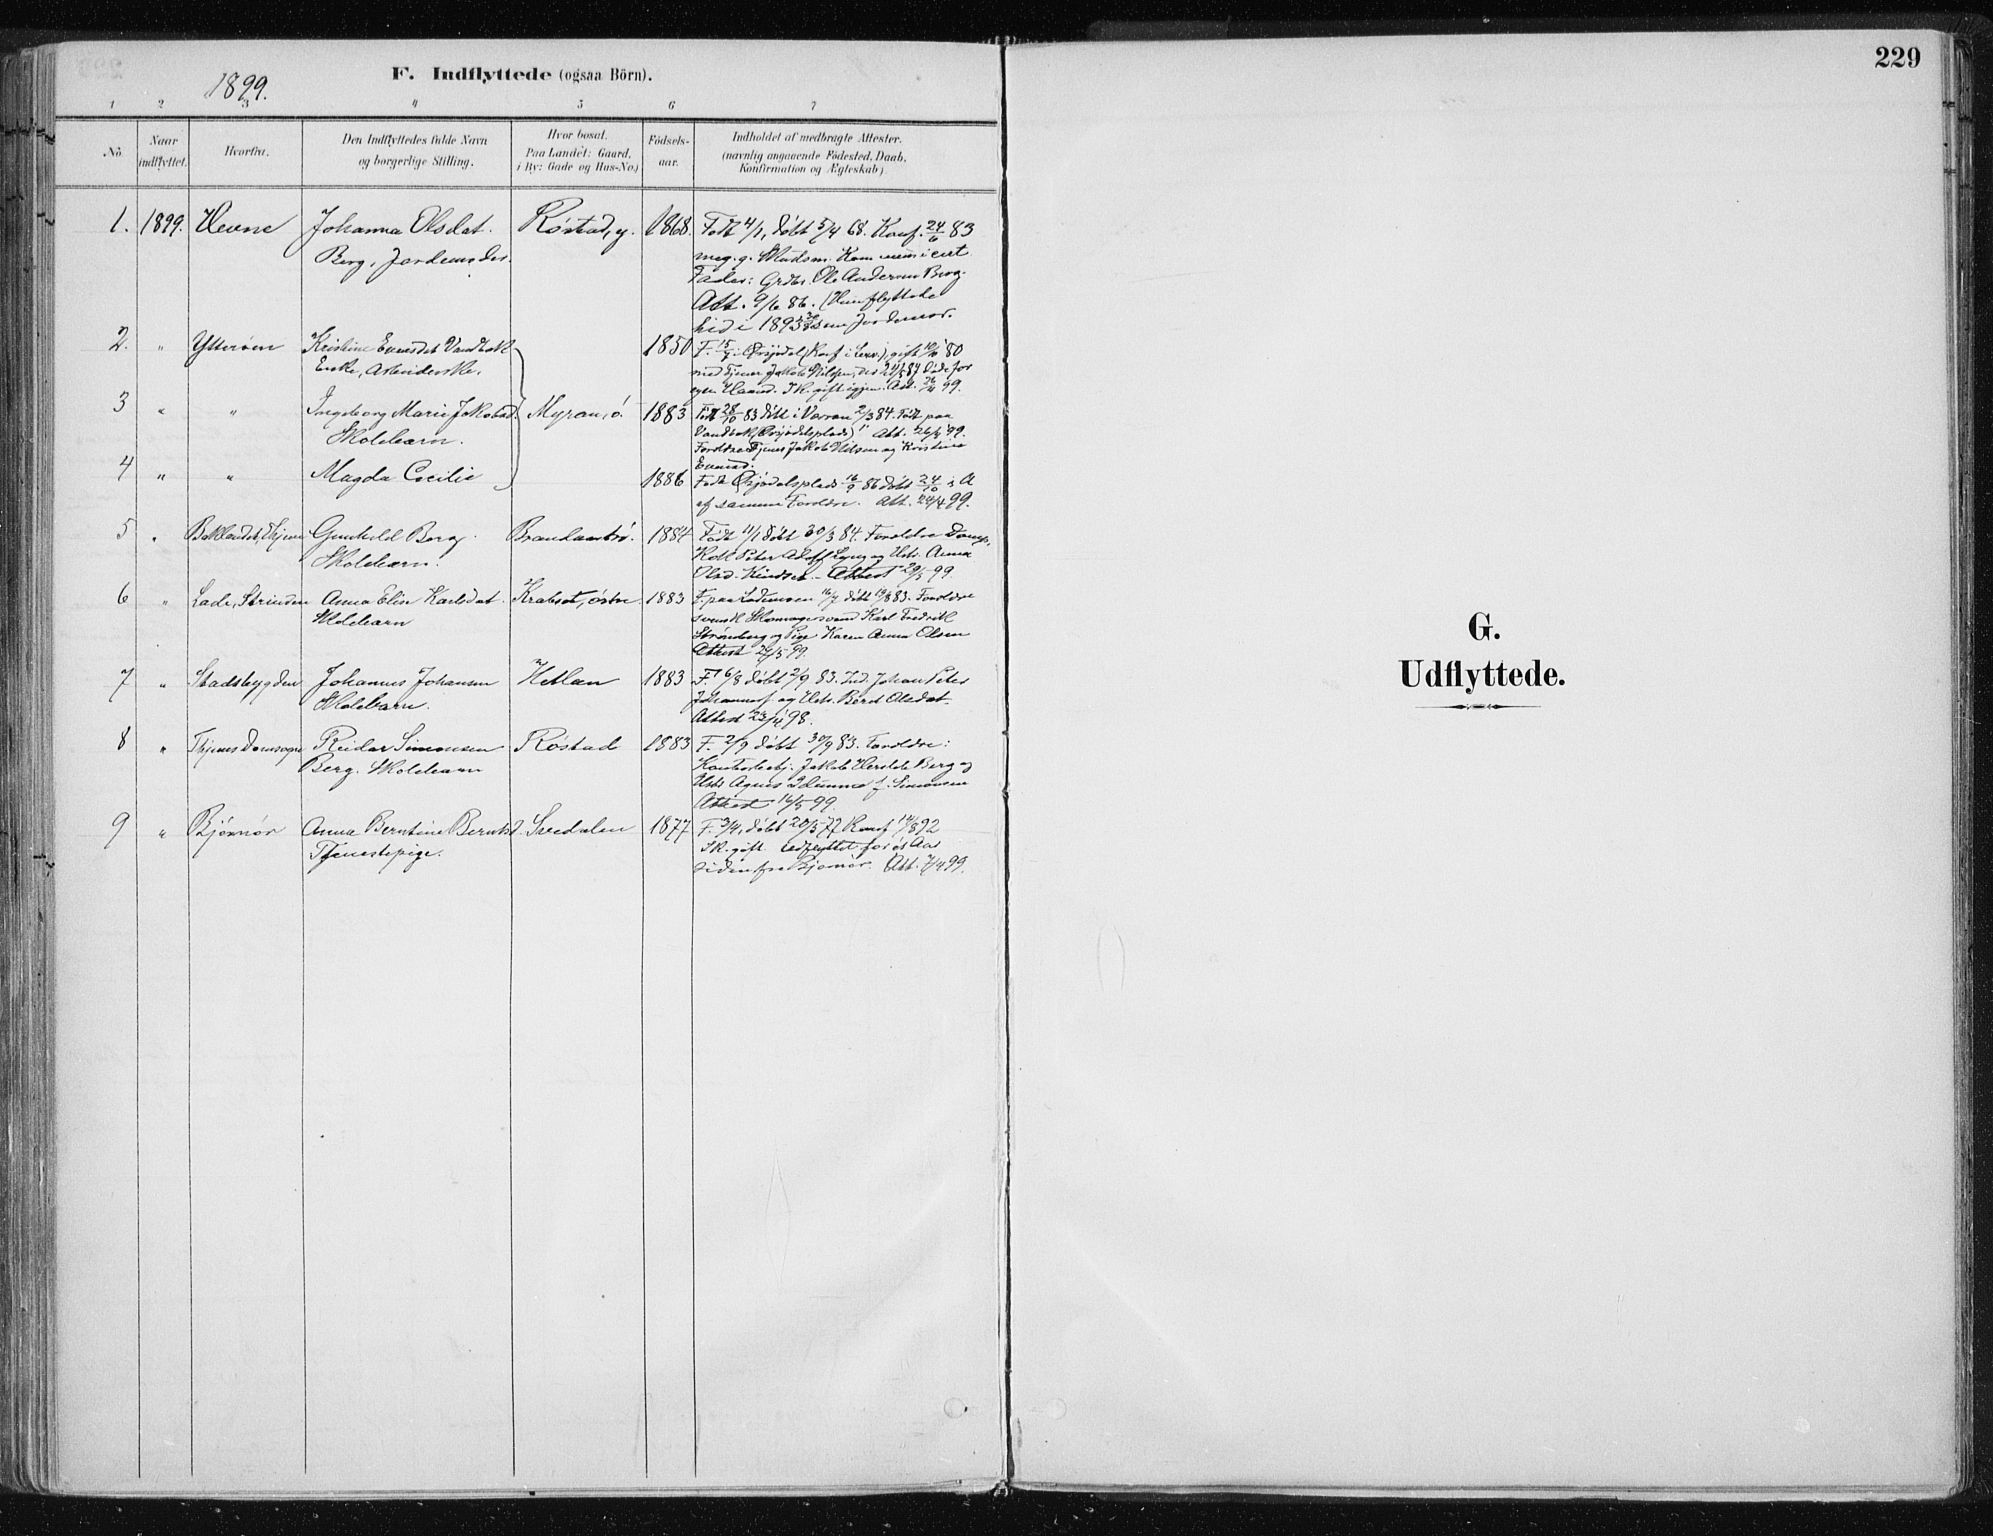 229
1899.
F. Indflyttede (ogsaa Börn).
1 2 3 4 5 6 7
No. Naar indflyttet. Hvorfra. Den Indflyttedes fulde Navn og borgerlige Stilling. Hvor bosat. Paa Landet: Gaard, i By: Gade og Hus-No.) Födsels-aar. Indholdet af medbragte Attester. (navnlig angaaende Födested, Daab, Konfirmation og Ægteskab)
1. 1899. Hevne Johanna Olsdat. Røstad, y. 1868. Født 4/1, døbt 5/4 68. Konf. 24/6 83
Berg, Jordemoder. meg. g. Skudsm.
Fader: Grdbr. Ole Andersen Berg.
Att. 9/6 86. (Hun flyttede
hid i 1893 som Jordemor.
2. " Ytterøen Kristine Evensdat Vandbak 1850 F. 15/9 i (Konf i ), gift 80
Enke, Arbeiderske. med Tjener Jakob Nilsen, død for
egen Haand. Ik. gift igjen. Att. 26/4 99.
3 " " Ingeborg Marie Jakobsd. Myran, ø. 1883 Født 28/10 83 døbt i Værran 2/3 84. Født paa
Skolebarn. Vandbak Att. 26/4 99.
Forældre Tjener Jakob Nilsen og Kristine
Evensd.
4 " " Magda Cecilie 1886 Født 16/9 86 døbt 24/10 i A
af samme Forældre. Att. 24/4 99.
5 " Baklandet, Thjem Gunhild Berg. Brandantrø. 1884 Født 11/1 døbt 30/3 84. Forældre
Skolebarn. Peter Adolf og Hstr. Anna
Olsd. Attest 29/5 99.
6 " Lade, Strinden Anna Elise Karlsdat. Krabset, østre 1883 F. paa Lademoen 16/7 døbt 19/8 83. Forældre
Skolebarn svensk Skomagersvend Karl Fredrik
Strömberg og Pige Karen Anna Olsen
Attest 26/5 99.
7 " Stadsbygden Johannes Johansen Hetlan 1883 F. 6/8 døbt 2/9 83. Ind. Johan Peter
Skolebarn. og Hstr. Beret Olsdat.
Attest 23/4 98.
8 " Thjems Domsogn Reidar Simonsen Røstad 1883 F. 2/9 døbt 30/9 83. Forældre:
Berg. Skolebarn Jakob Berg og
Hstr Agnes f. Simonsen
Attest 16/5 99.
9 " Bjørnør Anna Berntine Berntsd. Svedalen 1877 F. 3/4, døbt 20/5 77 Konf 14/8 92
Tjenestepige. Ik. gift. udflyttet for Aar
siden fra Bjørnør. Att. 7/4 99.
G.
Udflyttede.